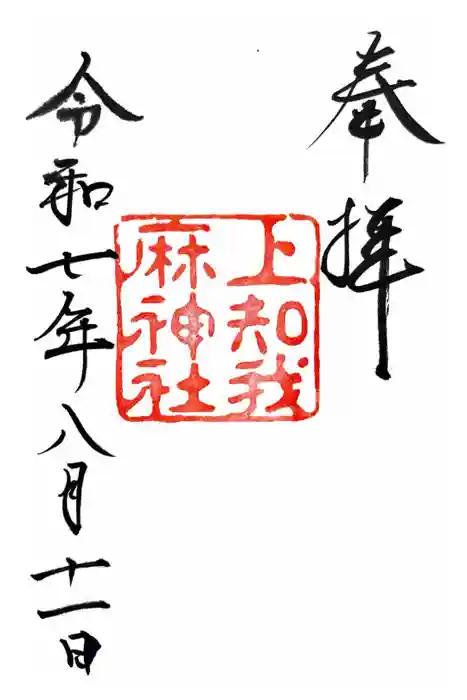 奉拝
上知我
麻神社
令和七年八月十一日